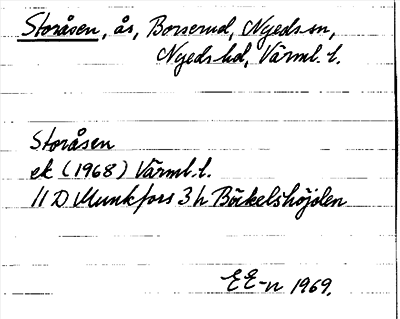 Storåsen, ås, Borserud, Nyeds sn,
Nyeds hd, Värml. l.
Storåsen
ek (1968) Värml. l.
11 D Munkfors 3 h Bäckelshöjden
EE-n 1969.